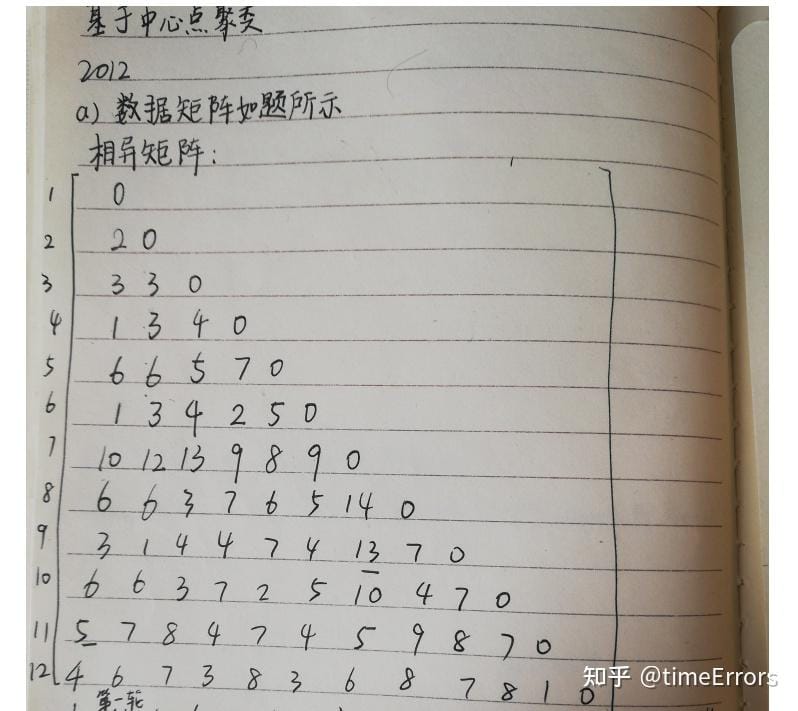 基于中心点聚类
2012
a) 数据矩阵如题所示
相异矩阵:
1 0
2 2 0
3 3 3 0
4 1 3 4 0
5 6 6 5 7 0
6 1 3 4 2 5 0
7 10 12 13 9 8 9 0
8 6 6 3 7 6 5 14 0
9 3 1 4 4 7 4 13 7 0
10 6 6 3 7 2 5 10 4 7 0
11 5 7 8 4 7 4 5 9 8 7 0
12 4 6 7 3 8 3 6 8 7 8 1 0
第一轮
知乎 @timeErrors